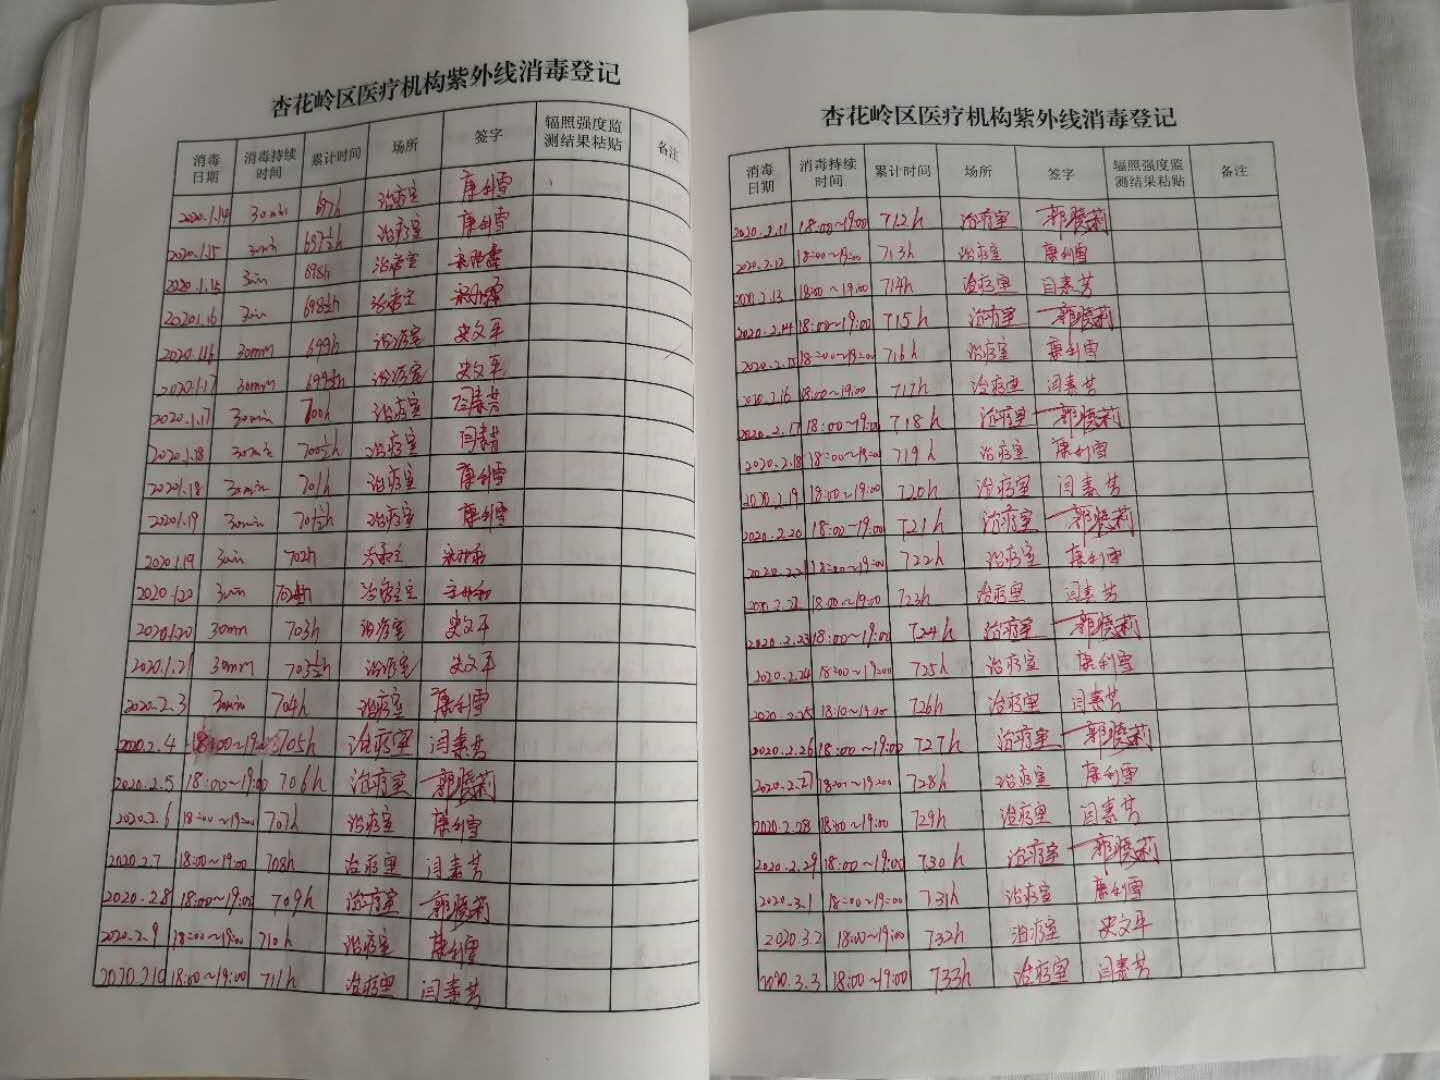 杏花岭区医疗机构紫外线消毒登记
消毒日期 消毒持续时间 累计时间 场所 签字 辐照强度监测结果粘贴 备注
2020.1.14 30min 697h 治疗室 康利雪
2020.1.15 30min 697½h 治疗室 康利雪
2020.1.15 3min 698h 治疗室
2020.1.16 3min 698½h 治疗室
2020.1.16 30min 699h 治疗室 史文平
2020.1.17 30min 699½h 治疗室 史文平
2020.1.17 30min 700h 治疗室 闫素芳
2020.1.18 30min 700½h 治疗室 闫素芳
2020.1.18 30min 701h 治疗室 康利雪
2020.1.19 30min 701½h 治疗室 康利雪
2020.1.19 3min 702h 治疗室
3min 治疗室
2020.1.20 30min 703h 治疗室 史文平
2020.1.21 30min 703½h 治疗室 史文平
2020.2.3 30min 704h 治疗室 康利雪
2020.2.4 18:00~19:00 705h 治疗室 闫素芳
2020.2.5 18:00~19:00 706h 治疗室 郭晓莉
2020.2.6 18:00~19:00 707h 治疗室 康利雪
2020.2.7 18:00~19:00 708h 治疗室 闫素芳
2020.2.8 18:00~19:00 709h 治疗室 郭晓莉
2020.2.9 18:00~19:00 710h 治疗室 康利雪
2020.2.10 18:00~19:00 711h 治疗室 闫素芳
杏花岭区医疗机构紫外线消毒登记
消毒日期 消毒持续时间 累计时间 场所 签字 辐照强度监测结果粘贴 备注
2020.2.11 18:00~19:00 712h 治疗室 郭晓莉
2020.2.12 18:00~19:00 713h 治疗室 康利雪
2020.2.13 18:00~19:00 714h 治疗室 闫素芳
2020.2.14 18:00~19:00 715h 治疗室 郭晓莉
2020.2.15 18:00~19:00 716h 治疗室 康利雪
2020.2.16 18:00~19:00 717h 治疗室 闫素芳
2020.2.17 18:00~19:00 718h 治疗室 郭晓莉
2020.2.18 18:00~19:00 719h 治疗室 康利雪
2020.2.19 18:00~19:00 720h 治疗室 闫素芳
2020.2.20 18:00~19:00 721h 治疗室 郭晓莉
2020.2.21 18:00~19:00 722h 治疗室 康利雪
2020.2.22 18:00~19:00 723h 治疗室 闫素芳
2020.2.23 18:00~19:00 724h 治疗室 郭晓莉
2020.2.24 18:00~19:00 725h 治疗室 康利雪
2020.2.25 18:00~19:00 726h 治疗室 闫素芳
2020.2.26 18:00~19:00 727h 治疗室 郭晓莉
2020.2.27 18:00~19:00 728h 治疗室 康利雪
2020.2.28 18:00~19:00 729h 治疗室 闫素芳
2020.2.29 18:00~19:00 730h 治疗室 郭晓莉
2020.3.1 18:00~19:00 731h 治疗室 康利雪
2020.3.2 18:00~19:00 732h 治疗室 史文平
2020.3.3 18:00~19:00 733h 治疗室 闫素芳